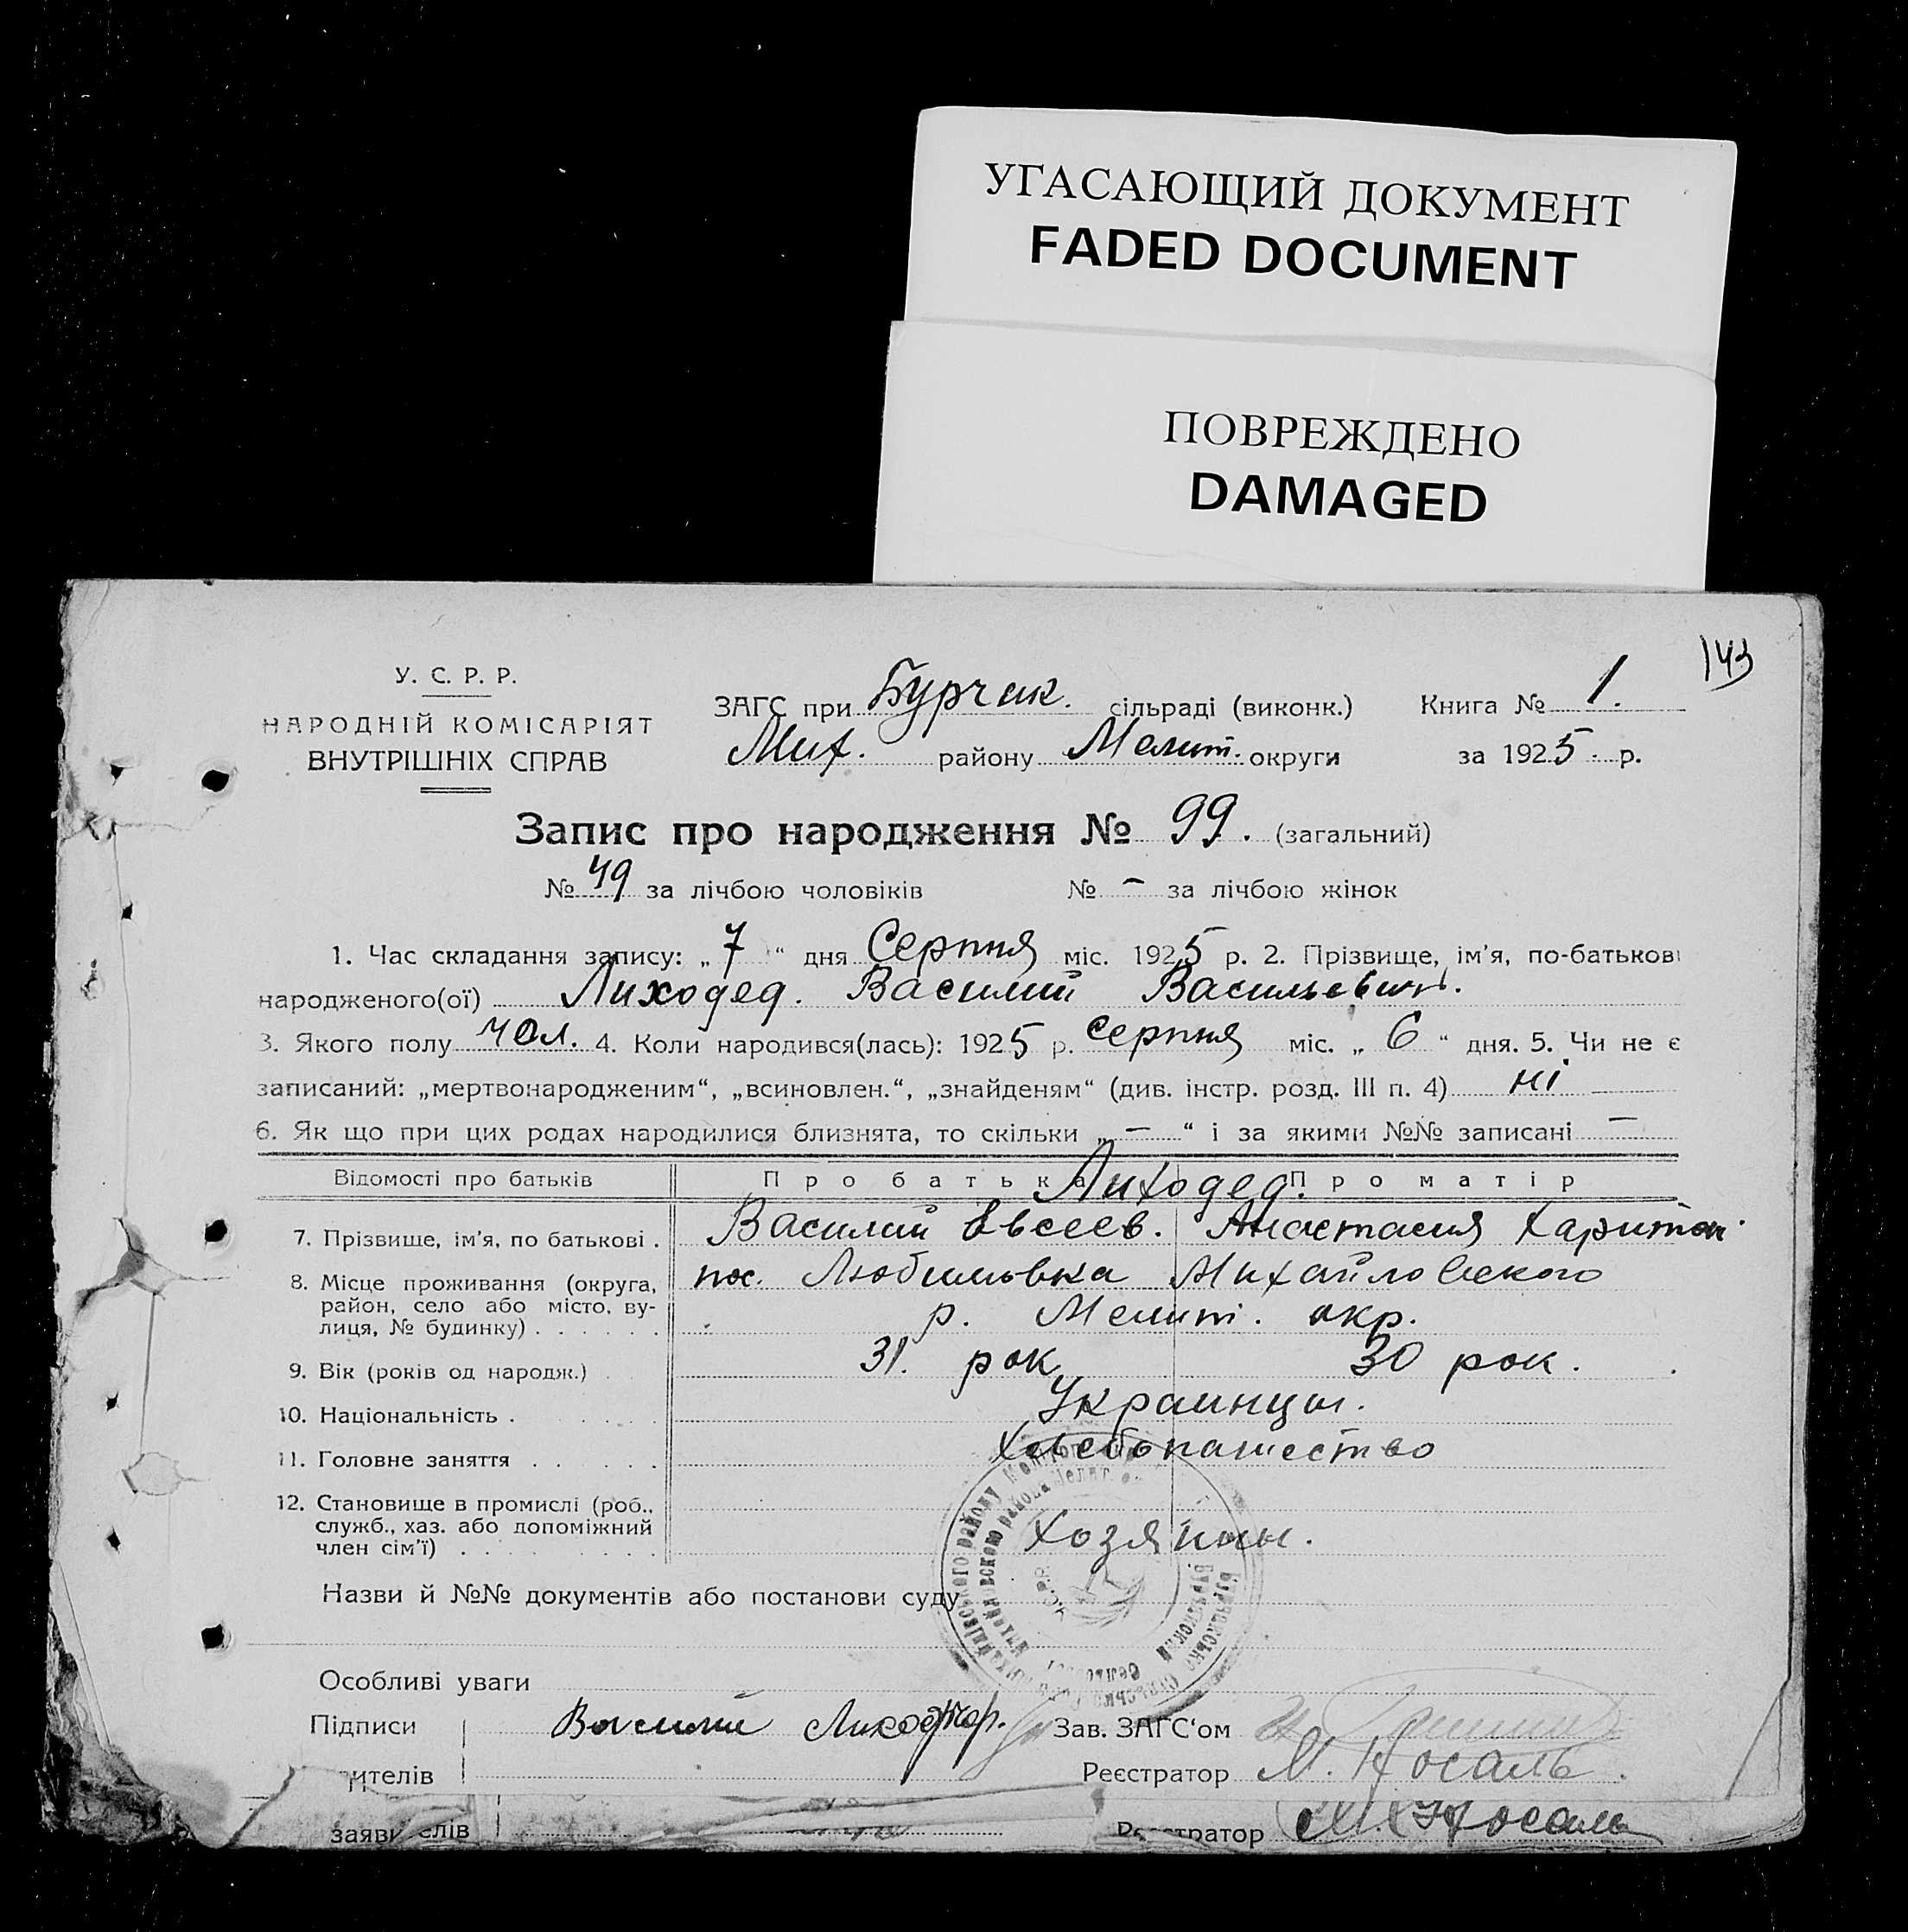 УГАСАЮЩИЙ ДОКУМЕНТ
FADED DOCUMENT
ПОВРЕЖДЕНО
DAMAGED
143
У. С. Р. Р.
НАРОДНІЙ КОМІСАРІЯТ
ВНУТРІШНІХ СПРАВ
ЗАГС при Бурчак. сільраді (виконк.) Книга № 1.
Мих. району Мелит. округи за 1925 р.
Запис про народження № 99. (загальний)
№ 49 за лічбою чоловіків № – за лічбою жінок
1. Час складання запису: „7“ дня Серпня міс. 1925 р. 2. Прізвище, ім'я, по-батькові
народженого(ої) Лиходед. Василий Васильевич.
3. Якого полу чол. 4. Коли народився(лась): 1925 р. серпня міс. „6“ дня. 5. Чи не є
записаний: „мертвонародженим“, „всиновлен.“, „знайденям“ (див. інстр. розд. III п. 4) ні
6. Як що при цих родах народилися близнята, то скільки „–“ і за якими №№ записані –
Відомості про батьків Про батька Про матір
Лиходед.
7. Прізвише, ім'я, по батькові . Василий Евсеев. Анастасия Харитон
8. Місце проживання (округа, пос. Любимовка Михайловского
район, село або місто, ву-
лиця, № будинку) . . . . . . р. Мелит. окр.
9. Вік (років од народж.) 31. рок 30 рок.
10. Національність . Украинцы.
11. Головне заняття . . . . . Хлебопашество
12. Становище в промислі (роб.,
служб., хаз. або допоміжний
член сім'ї) . . . . . . . . . Хозяины.
Назви й №№ документів або постанови суду
Особливі уваги
Підписи Василий Зав. ЗАГС'ом
ителів Реєстратор М. Косаль.
заяви елів Реєстратор М. Косаль